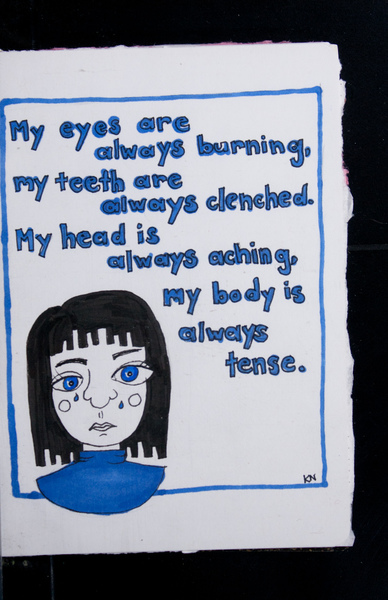 My eyes are
always burning,
my teeth are
always clenched.
My head is
always aching,
my body is
always
tense.
KN